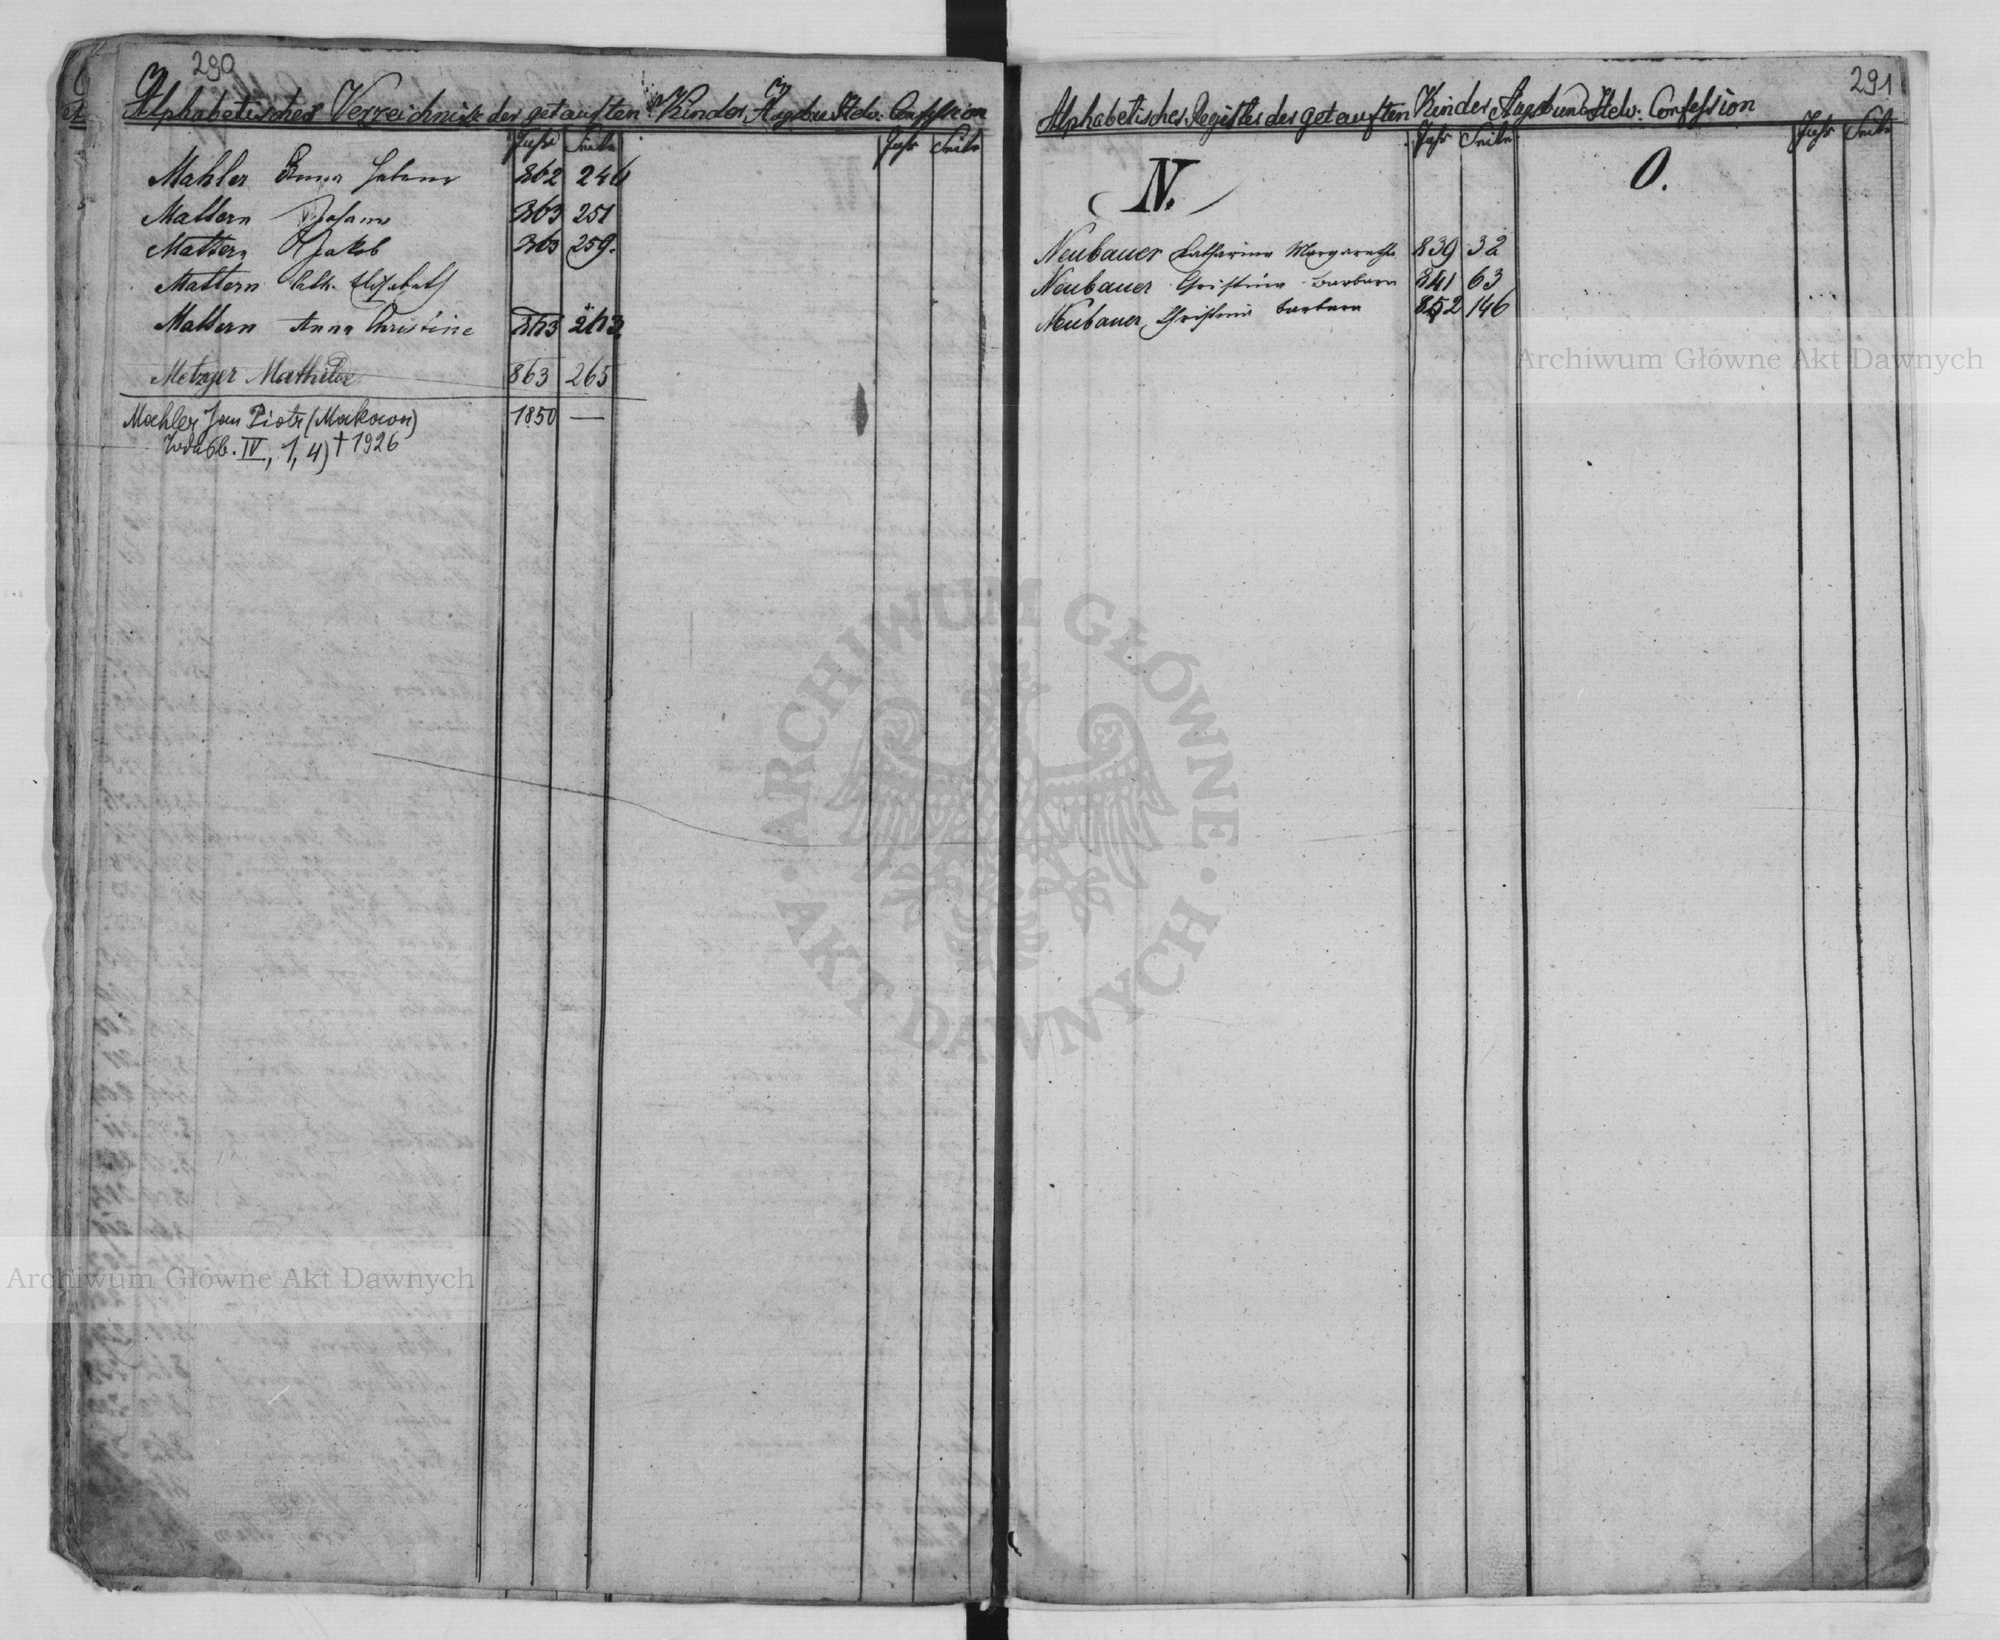 290
Alphabetisches Verzeichniss der getauften Kinder, Augsb u Helv. Confession
Jahr Seite Jahr Seite
Mahler Anna Helena 862 246
Mattern Johann 863 251
Mattern Jakob 863 259.
Mattern Cath. Elisabeth
Mattern Anna Christine 863 263
Metzger Mathilde 863 265
Machler Jan Piotr (Mokowon) 1850 —
IV, 1, 4) † 1926
291
Alphabetisches Register der getauften Kinder Augsb und Helv. Confession
Jahr Seite Jahr Seite
N.
O.
Neubauer Katharina Margaretha 839 32
Neubauer Christina Barbara 841 63
Neubauer Christina Barbara 852 146
Archiwum Główne Akt Dawnych
ARCHIWUM GŁÓWNE · AKT DAWNYCH ·
Archiwum Główne Akt Dawnych